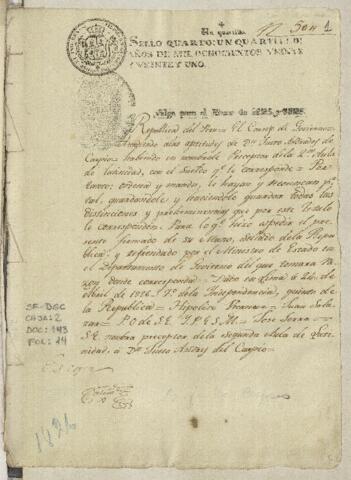 Un quartillo
SELLO QUARTO: UN QUARTILLO:
AÑOS DE MIL OCHOCIENTOS VEINTE
Y VEINTE Y UNO.
Valga para el Bienio de 1825 y 1826.
Republica del Peru = El Consejo de Gobierno
Atendiendo a las aptitudes de Dn Justo Andres del
Carpio ha venido en nombrarle Preceptor de la 2a Aula
de latinidad, con el sueldo qe le corresponde = Por
tanto; ordena y manda, le hayan y reconozcan pr
tal, guardandole y haciendole guardar todas las
distinciones y preheminencias que por este titulo
le corresponden. Para lo qe hizo expedir el pre
sente firmado de su Mano, sellado de la Repu
blica y refrendado por el Ministro de Estado en
el Departamento de Govierno del que tomara ra
zon donde corresponda Dado en Lima à 24 de
Abril de 1826. 7o de la Independencia, quinto de
la Republica = Hipolito Unanue = Juan Sala
zar = P. O. de S. E. Jose Serra =
S. E. nombra preceptor de la segunda Aula de Lati
nidad. à Dn Justo Andres del Carpio =
Es Copia
1826
SF-DGC
CAJA: 2
DOC: 143
FOL: 14